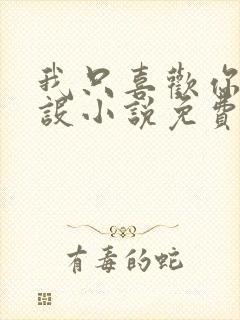 我只喜歡你
設小說免費
有毒的蛇